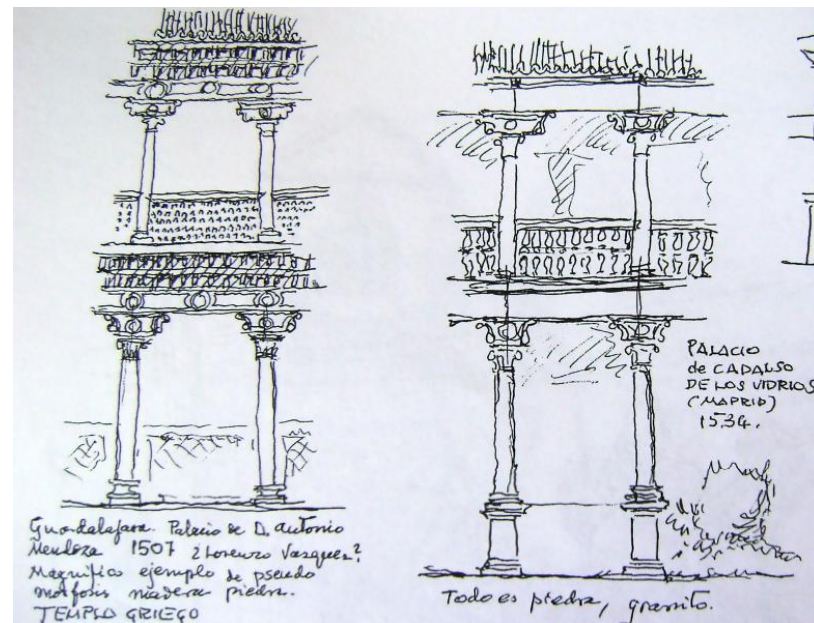 Guadalajara. Palacio de D. Antonio
Mendoza 1507 ¿Lorenzo Vazquez?
Magnífico ejemplo de pseudo
morfosis madera piedra.
TEMPLO GRIEGO
PALACIO
de CADALSO
DE LOS VIDRIOS
(MADRID)
1534.
Todo es piedra, granito.